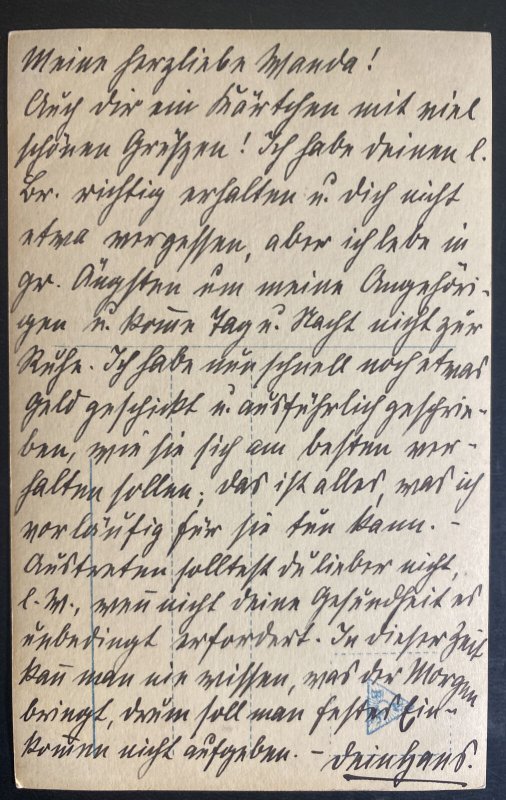 Meine herzliebe Wanda!
Auch dir ein Kärtchen mit viel
schönen Grüßen! Ich habe deinen l.
Br. richtig erhalten u. dich nicht
etwa vergessen, aber ich lebe in
gr. Ängsten um meine Angehöri-
gen u. kom̄e Tag u. Nacht nicht zur
Ruhe. Ich habe nun schnell noch etwas
Geld geschickt u. ausführlich geschrie-
ben, wie sie sich am besten ver-
halten sollen; das ist alles, was ich
vorläufig für sie tun kann. –
Austreten solltest du lieber nicht,
l. W., wen̄ nicht deine Gesundheit es
unbedingt erfordert. In dieser Zeit
kan̄ man nie wissen, was der Morgen
bringt, drum soll man festes Ein-
kommen nicht aufgeben. – dein Hans.